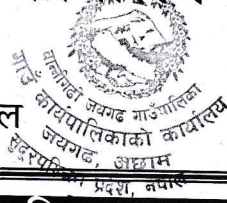 बान्नीगढी जयगढ गाउँपालिका
गाउँ कार्यपालिकाको कार्यालय
ल
जयगढ, अछाम
सुदूरपश्चिम प्रदेश, नेपाल